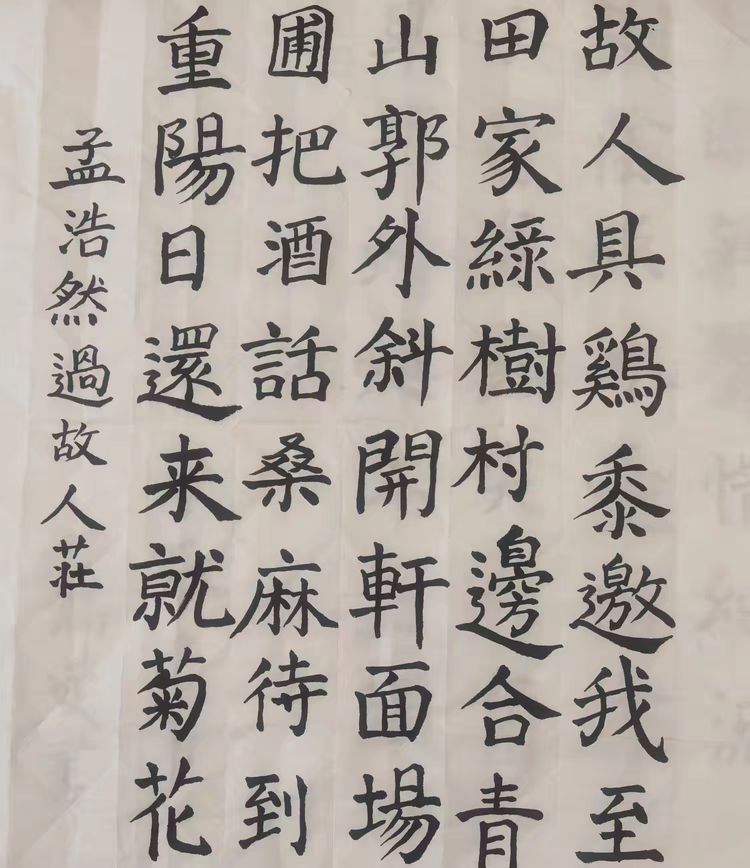 故人具鷄黍邀我至
田家綠樹村邊合青
山郭外斜開軒面場
圃把酒話桑麻待到
重陽日還来就菊花
孟浩然過故人莊